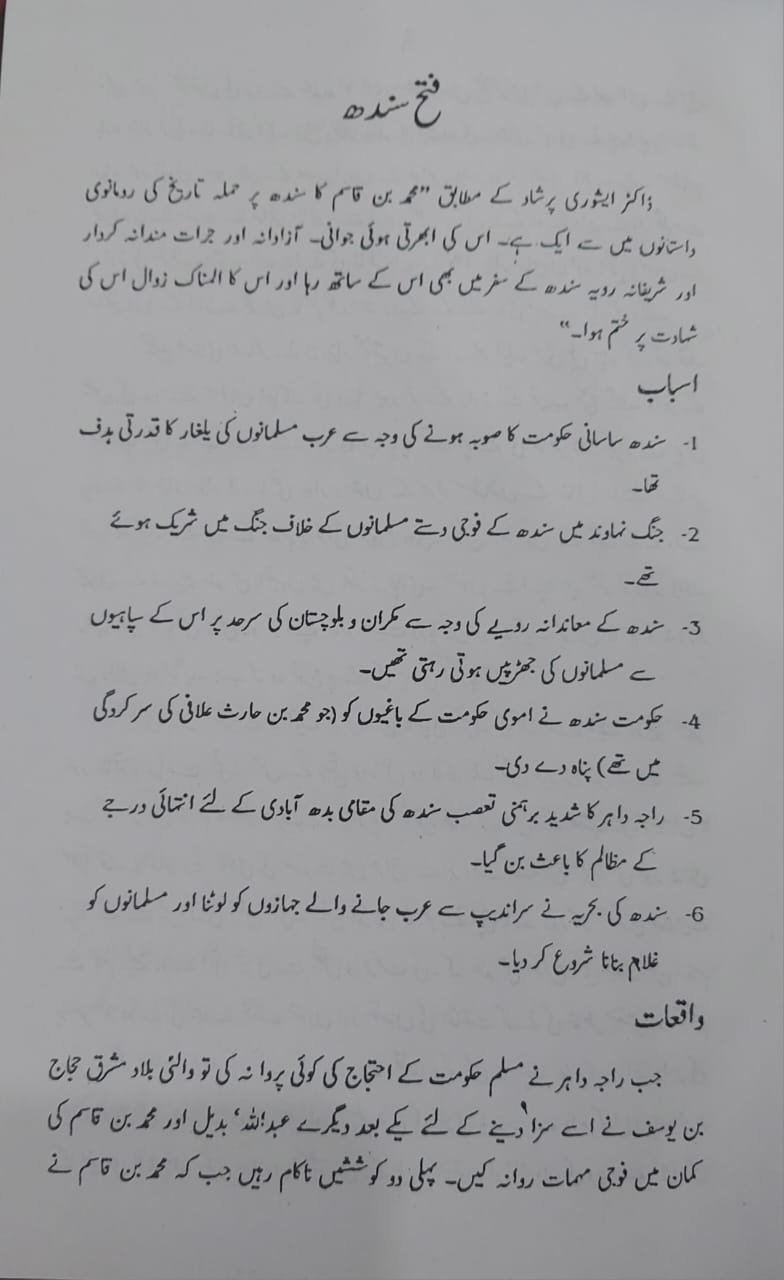 فتح سندھ
ڈاکٹر ایشوری پرشاد کے مطابق "محمد بن قاسم کا سندھ پر حملہ تاریخ کی رومانوی
داستانوں میں سے ایک ہے۔ اس کی ابھرتی ہوئی جوانی۔ آزادانہ اور جرات مندانہ کردار
اور شریفانہ رویہ سندھ کے سفر میں بھی اس کے ساتھ رہا اور اس کا المناک زوال اس کی
شہادت پر ختم ہوا۔"
اسباب
1- سندھ ساسانی حکومت کا صوبہ ہونے کی وجہ سے عرب مسلمانوں کی یلغار کا قدرتی ہدف
تھا۔
2- جنگ نہاوند میں سندھ کے فوجی دستے مسلمانوں کے خلاف جنگ میں شریک ہوئے
تھے۔
3- سندھ کے معاندانہ رویے کی وجہ سے مکران و بلوچستان کی سرحد پر اس کے سپاہیوں
سے مسلمانوں کی جھڑپیں ہوتی رہتی تھیں۔
4- حکومت سندھ نے اموی حکومت کے باغیوں کو (جو محمد بن حارث علافی کی سرکردگی
میں تھے) پناہ دے دی۔
5- راجہ داہر کا شدید برہمنی تعصب سندھ کی مقامی بدھ آبادی کے لئے انتہائی درجے
کے مظالم کا باعث بن گیا۔
6- سندھ کی بحریہ نے سراندیپ سے عرب جانے والے جہازوں کو لوٹنا اور مسلمانوں کو
غلام بنانا شروع کر دیا۔
واقعات
جب راجہ داہر نے مسلم حکومت کے احتجاج کی کوئی پروا نہ کی تو والئی بلاد مشرق حجاج
بن یوسف نے اسے سزا دینے کے لئے یکے بعد دیگرے عبداللہ' بدیل اور محمد بن قاسم کی
کمان میں فوجی مہمات روانہ کیں۔ پہلی دو کوششیں ناکام رہیں جب کہ محمد بن قاسم نے